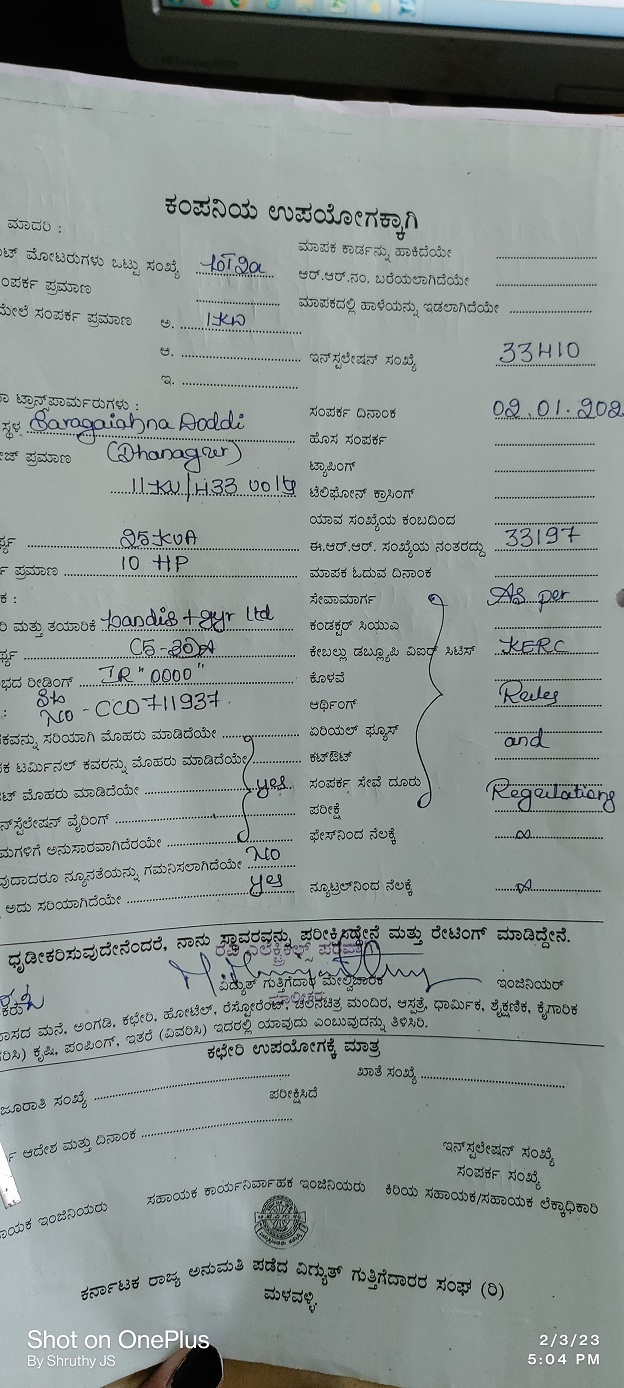 ಕಂಪನಿಯ ಉಪಯೋಗಕ್ಕಾಗಿ
ಮಾದರಿ :
ಮೋಟರುಗಳು ಒಟ್ಟು ಸಂಖ್ಯೆ
ಪ್ರಮಾಣ
ಮೇಲೆ ಸಂಪರ್ಕ ಪ್ರಮಾಣ ಅ. 1KW
ಆ.
ಇ.
ಟ್ರಾನ್ಸ್‌ಫಾರ್ಮರುಗಳು :
ಸ್ಥಳ Baragaiahna Doddi
ಪ್ರಮಾಣ (Dhanagur)
11KV/433 Volts
25KVA
ಪ್ರಮಾಣ 10 HP
ಮತ್ತು ತಯಾರಿಕೆ Landis + gyr ltd
C5-30A
ರೀಡಿಂಗ್ IR "0000"
NO - CCD711937
ಸರಿಯಾಗಿ ಮೊಹರು ಮಾಡಿದೆಯೇ
ಟರ್ಮಿನಲ್ ಕವರನ್ನು ಮೊಹರು ಮಾಡಿದೆಯೇ
ಮೊಹರು ಮಾಡಿದೆಯೇ yes
ವೈರಿಂಗ್
ಅನುಸಾರವಾಗಿದೆಯೇ
ನ್ಯೂನತೆಯನ್ನು ಗಮನಿಸಲಾಗಿದೆಯೇ NO
ಅದು ಸರಿಯಾಗಿದೆಯೇ yes
ಮಾಪಕ ಕಾರ್ಡನ್ನು ಹಾಕಿದೆಯೇ
ಆರ್.ಆರ್.ನಂ. ಬರೆಯಲಾಗಿದೆಯೇ
ಮಾಪಕದಲ್ಲಿ ಹಾಳೆಯನ್ನು ಇಡಲಾಗಿದೆಯೇ
ಇನ್‌ಸ್ಟಲೇಷನ್ ಸಂಖ್ಯೆ 33410
ಸಂಪರ್ಕ ದಿನಾಂಕ 02.01.202
ಹೊಸ ಸಂಪರ್ಕ
ಟ್ಯಾಪಿಂಗ್
ಟೆಲಿಫೋನ್ ಕ್ರಾಸಿಂಗ್
ಯಾವ ಸಂಖ್ಯೆಯ ಕಂಬದಿಂದ
ಈ.ಆರ್.ಆರ್. ಸಂಖ್ಯೆಯ ನಂತರದ್ದು 33197
ಮಾಪಕ ಓದುವ ದಿನಾಂಕ
ಸೇವಾಮಾರ್ಗ As per
ಕಂಡಕ್ಟರ್ ಸಿಯುಎ
ಕೇಬಲ್ಲು ಡಬ್ಲ್ಯೂಪಿ ವಿಐರ್ ಸಿಟಿಸ್ KERC
ಕೊಳವೆ
ಆರ್ಥಿಂಗ್ Rules
ಏರಿಯಲ್ ಫ್ಯೂಸ್
ಕಟ್‌ಔಟ್ and
ಸಂಪರ್ಕ ಸೇವೆ ದೂರು Regulations
ಪರೀಕ್ಷೆ
ಫೇಸ್‌ನಿಂದ ನೆಲಕ್ಕೆ
ನ್ಯೂಟ್ರಲ್‌ನಿಂದ ನೆಲಕ್ಕೆ
ಧೃಡೀಕರಿಸುವುದೇನೆಂದರೆ, ನಾನು ಸ್ಥಾವರವನ್ನು ಪರೀಕ್ಷಿಸಿದ್ದೇನೆ ಮತ್ತು ರೇಟಿಂಗ್ ಮಾಡಿದ್ದೇನೆ.
ವಿದ್ಯುತ್ ಗುತ್ತಿಗೆದಾರ ಮೇಲ್ವಿಚಾರಕ ಇಂಜಿನಿಯರ್
ಮನೆ, ಅಂಗಡಿ, ಕಛೇರಿ, ಹೋಟೆಲ್, ರೆಸ್ಟೋರೆಂಟ್, ಚಲನಚಿತ್ರ ಮಂದಿರ, ಆಸ್ಪತ್ರೆ, ಧಾರ್ಮಿಕ, ಶೈಕ್ಷಣಿಕ, ಕೈಗಾರಿಕ
ಕೃಷಿ, ಪಂಪಿಂಗ್, ಇತರೆ (ವಿವರಿಸಿ) ಇದರಲ್ಲಿ ಯಾವುದು ಎಂಬುವುದನ್ನು ತಿಳಿಸಿರಿ.
ಕಛೇರಿ ಉಪಯೋಗಕ್ಕೆ ಮಾತ್ರ
ಸಂಖ್ಯೆ ಖಾತೆ ಸಂಖ್ಯೆ
ಪರೀಕ್ಷಿಸಿದೆ
ಆದೇಶ ಮತ್ತು ದಿನಾಂಕ
ಇನ್‌ಸ್ಟಲೇಷನ್ ಸಂಖ್ಯೆ
ಸಂಪರ್ಕ ಸಂಖ್ಯೆ
ಇಂಜಿನಿಯರು ಸಹಾಯಕ ಕಾರ್ಯನಿರ್ವಾಹಕ ಇಂಜಿನಿಯರು ಕಿರಿಯ ಸಹಾಯಕ/ಸಹಾಯಕ ಲೆಕ್ಕಾಧಿಕಾರಿ
ಕರ್ನಾಟಕ ರಾಜ್ಯ ಅನುಮತಿ ಪಡೆದ ವಿದ್ಯುತ್ ಗುತ್ತಿಗೆದಾರರ ಸಂಘ (ರಿ)
ಮಳವಳ್ಳಿ.
Shot on OnePlus
By Shruthy JS
2/3/23
5:04 PM